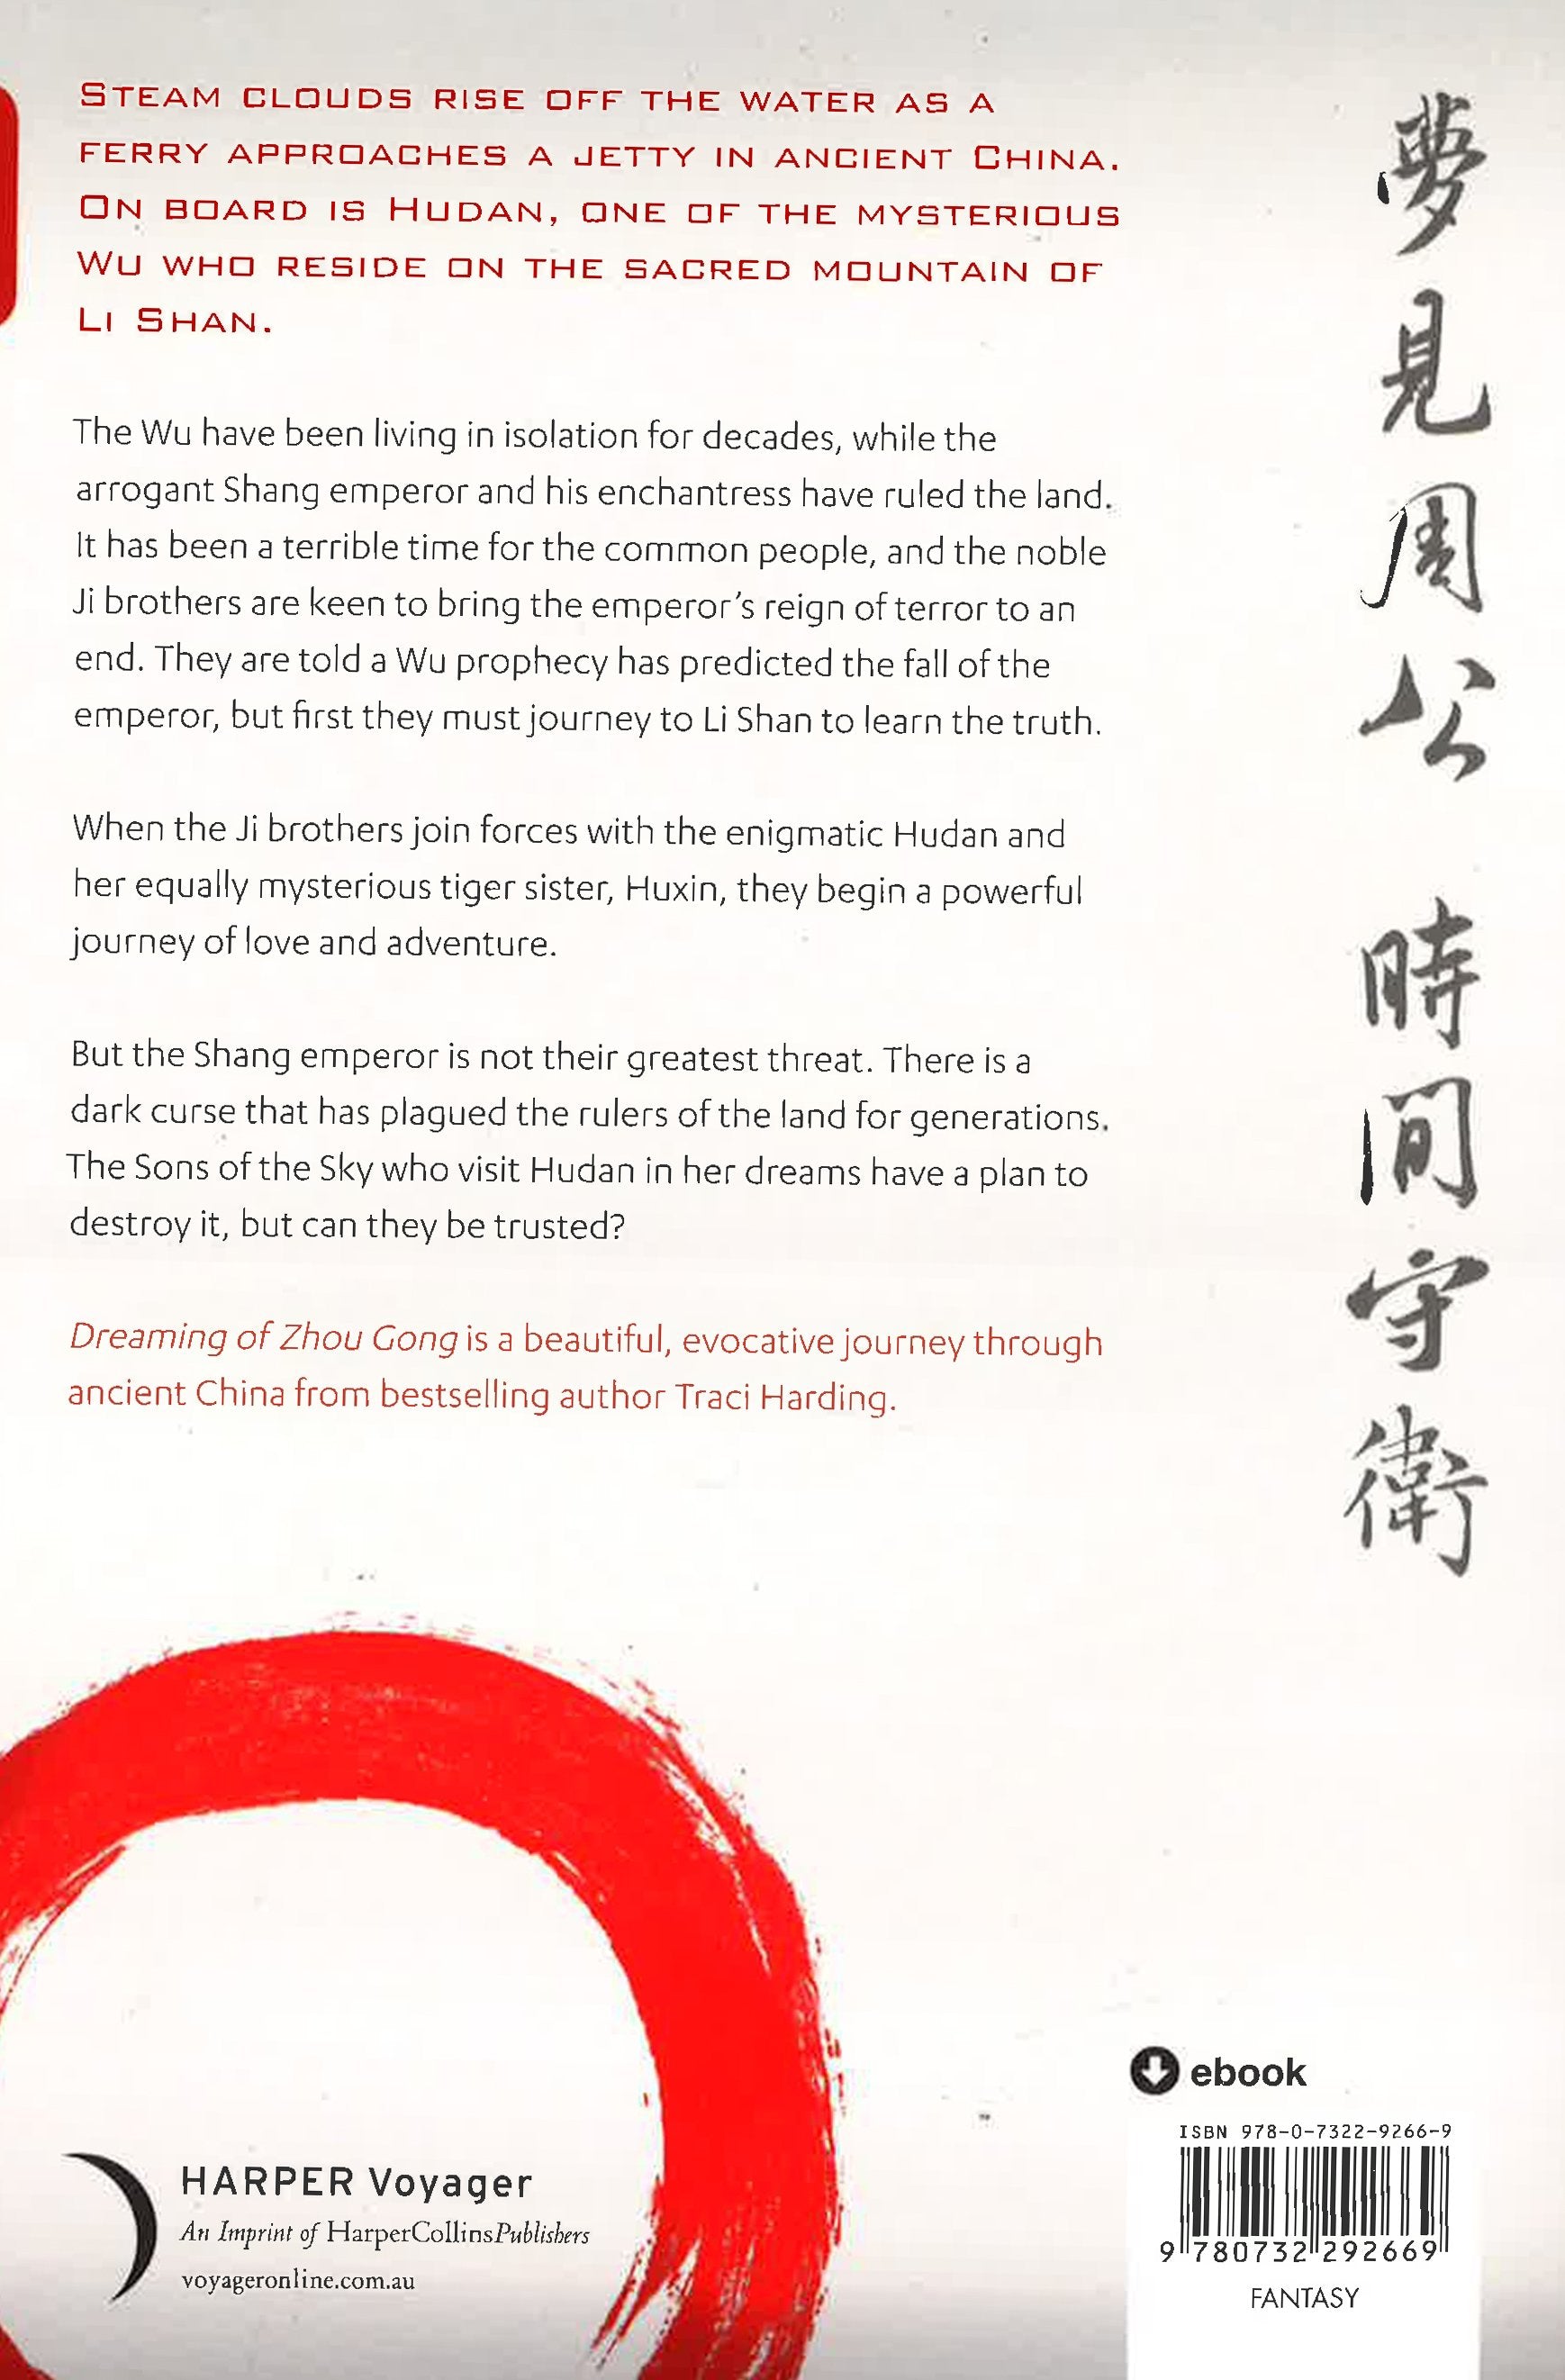 STEAM CLOUDS RISE OFF THE WATER AS A
FERRY APPROACHES A JETTY IN ANCIENT CHINA.
ON BOARD IS HUDAN, ONE OF THE MYSTERIOUS
WU WHO RESIDE ON THE SACRED MOUNTAIN OF
LI SHAN.
The Wu have been living in isolation for decades, while the
arrogant Shang emperor and his enchantress have ruled the land.
It has been a terrible time for the common people, and the noble
Ji brothers are keen to bring the emperor's reign of terror to an
end. They are told a Wu prophecy has predicted the fall of the
emperor, but first they must journey to Li Shan to learn the truth.
When the Ji brothers join forces with the enigmatic Hudan and
her equally mysterious tiger sister, Huxin, they begin a powerful
journey of love and adventure.
But the Shang emperor is not their greatest threat. There is a
dark curse that has plagued the rulers of the land for generations.
The Sons of the Sky who visit Hudan in her dreams have a plan to
destroy it, but can they be trusted?
Dreaming of Zhou Gong is a beautiful, evocative journey through
ancient China from bestselling author Traci Harding.
夢見周公 時間守衛
HARPER Voyager
An Imprint of HarperCollinsPublishers
voyageronline.com.au
ebook
ISBN 978-0-7322-9266-9
9 780732 292669
FANTASY